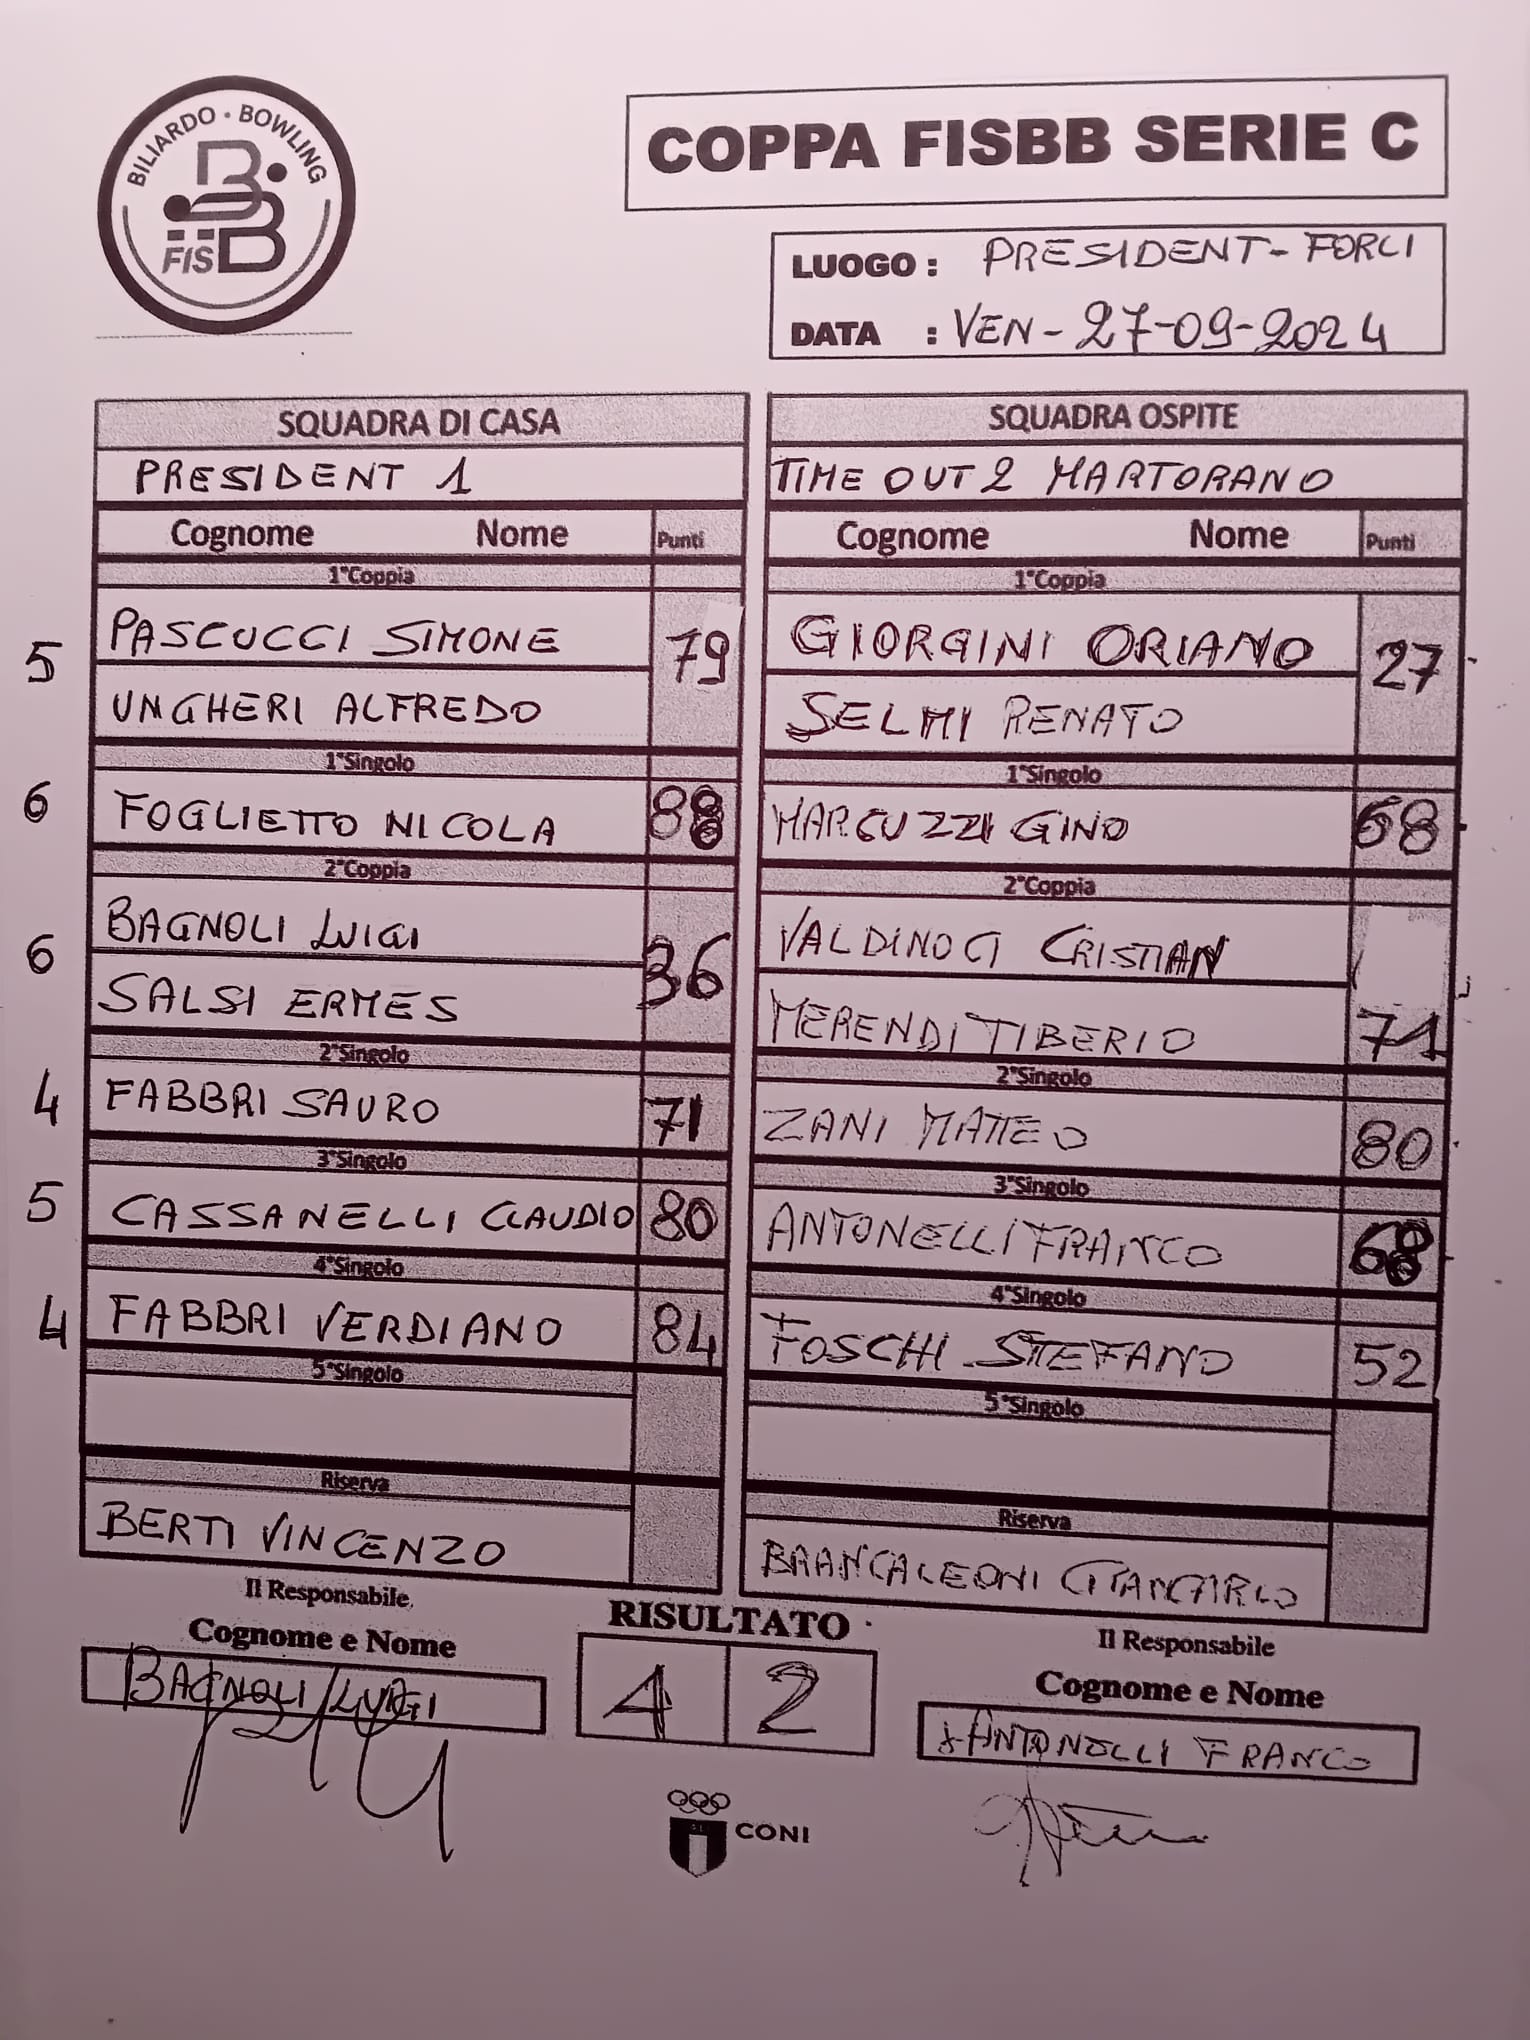 BILIARDO · BOWLING
FISBB
COPPA FISBB SERIE C
LUOGO : PRESIDENT - FORLI
DATA : VEN - 27-09-2024
SQUADRA DI CASA
PRESIDENT 1
Cognome Nome Punti
1°Coppia
5 PASCUCCI SIMONE 79
UNGHERI ALFREDO
1°Singolo
6 FOGLIETTO NICOLA 88
2°Coppia
6 BAGNOLI LUIGI 36
SALSI ERMES
2°Singolo
4 FABBRI SAURO 71
3°Singolo
5 CASSANELLI CLAUDIO 80
4°Singolo
4 FABBRI VERDIANO 84
5°Singolo
Riserva
BERTI VINCENZO
Il Responsabile
Cognome e Nome
BAGNOLI LUIGI
SQUADRA OSPITE
TIME OUT 2 MARTORANO
Cognome Nome Punti
1°Coppia
GIORGINI ORIANO 27
SELMI RENATO
1°Singolo
MARCUZZI GINO 68
2°Coppia
VALDINOCI CRISTIAN
MERENDI TIBERIO 71
2°Singolo
ZANI MATTEO 80
3°Singolo
ANTONELLI FRANCO 68
4°Singolo
FOSCHI STEFANO 52
5°Singolo
Riserva
BRANCALEONI GIANCARLO
Il Responsabile
Cognome e Nome
ANTONELLI FRANCO
RISULTATO
4 2
CONI